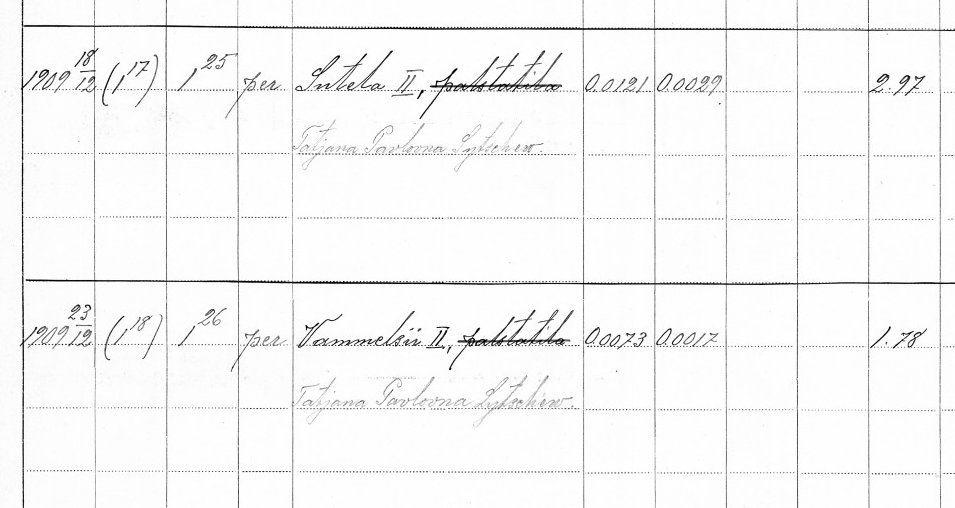 1909 18/12 (1 17) 1 25 per Sutela II, palstatila 0.0121 0.0029 2.97
Tatjana Pavlovna Sytschew.
1909 23/12 (1 18) 1 26 per Vammelsii II, palstatila 0.0073 0.0017 1.78
Tatjana Pavlovna Sytschew.